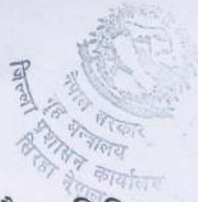 नेपाल सरकार
गृह मन्त्रालय
जिल्ला प्रशासन कार्यालय
सिरहा नेपाल